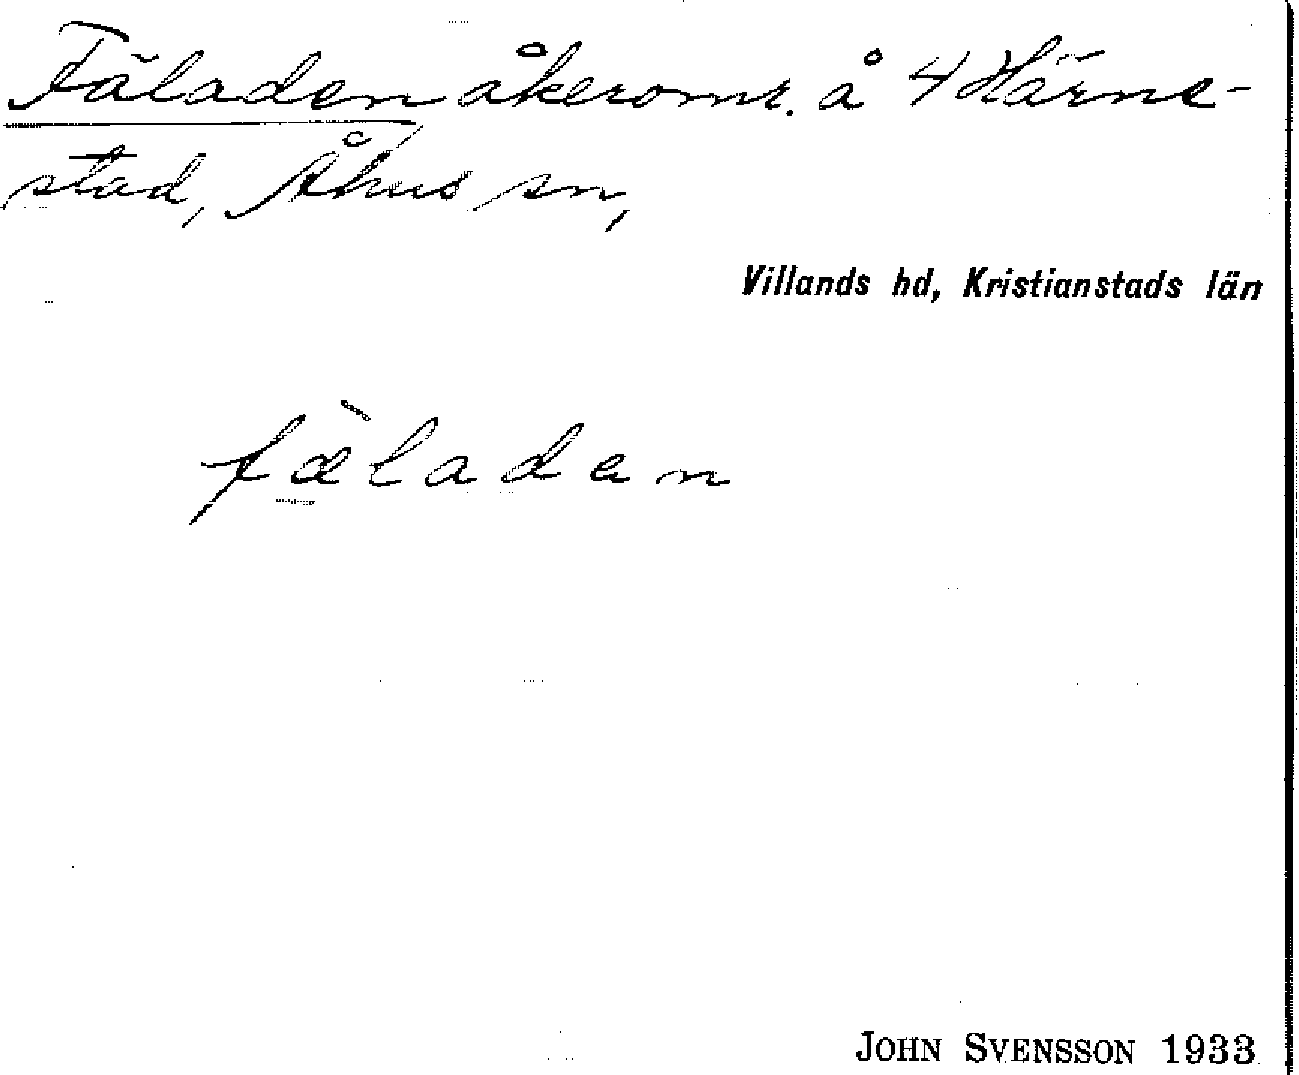 Fäladen åkeromr. å 4 Härne-
stad, Åhus sn,
Villands hd, Kristianstads län
fæ̀ladan
JOHN SVENSSON 1933